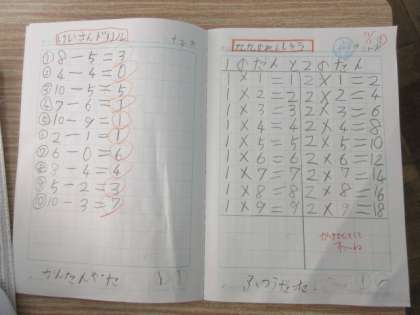 けいさんドリル
① 8-5=3
② 4-4=0
③ 10-5=5
④ 7-6=1
⑤ 10-9=1
⑥ 2-1=1
⑦ 6-0=6
⑧ 8-4=4
⑨ 5-2=3
⑩ 10-3=7
かんたんやた
1のだんと2のだん
1×1=1 2×1=2
1×2=2 2×2=4
1×3=3 2×3=6
1×4=4 2×4=8
1×5=5 2×5=10
1×6=6 2×6=12
1×7=7 2×7=14
1×8=8 2×8=16
1×9=9 2×9=18
ふつうだった